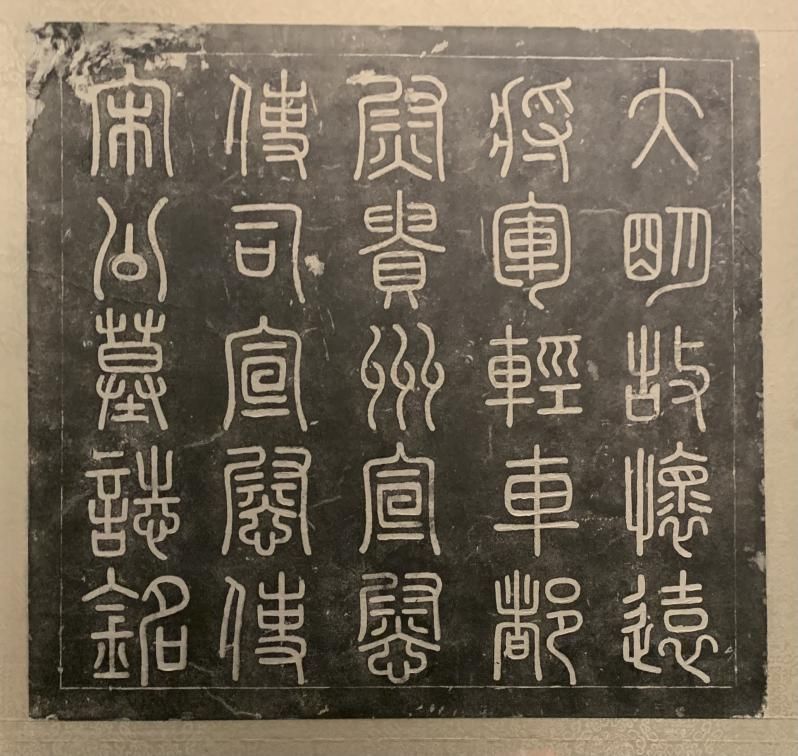 大明故懷遠
將軍輕車都
尉貴州宣慰
使司宣慰使
宋公墓誌銘